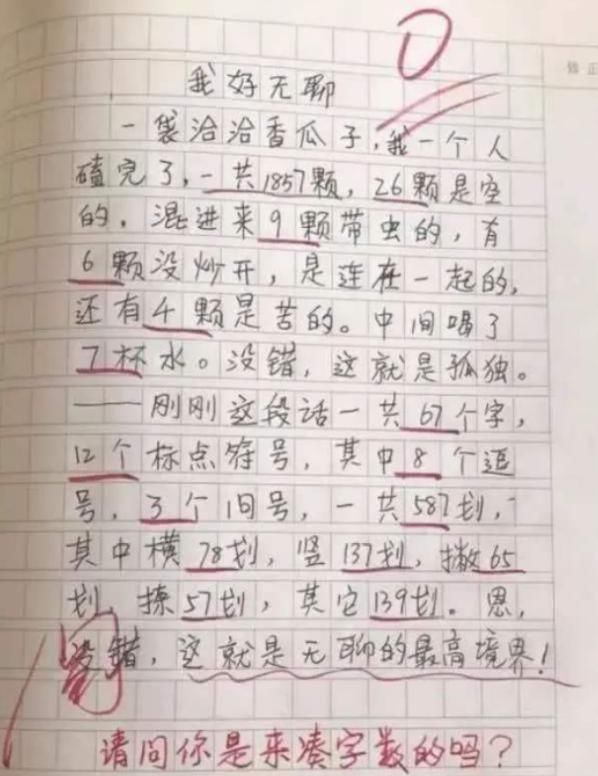 0
我好无聊
一袋洽洽香瓜子,我一个人
磕完了,一共1857颗,26颗是空
的,混进来9颗带虫的,有
6颗没炒开,是连在一起的,
还有4颗是苦的。中间喝了
7杯水。没错,这就是孤独。
——刚刚这段话一共67个字,
12个标点符号,其中8个逗
号,3个句号,一共587划,
其中横78划,竖137划,撇65
划,捺57划,其它139划。恩,
没错,这就是无聊的最高境界!
请问你是来凑字数的吗?